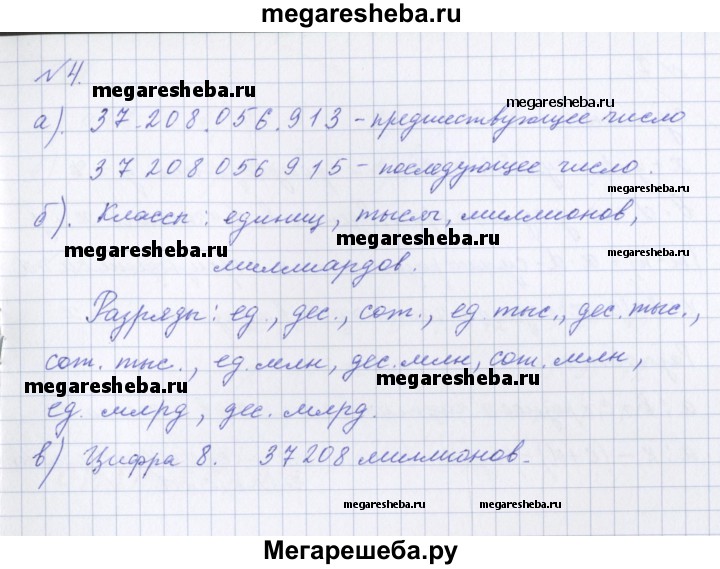 megaresheba.ru
№4.
megaresheba.ru
megaresheba.ru
а). 37.208.056.913 – предшествующее число
37 208 056 915 – последующее число.
megaresheba.ru
б). Классы: единиц, тысяч, миллионов,
megaresheba.ru
megaresheba.ru
миллиардов.
megaresheba.ru
Разряды: ед., дес., сот., ед. тыс., дес. тыс.,
сот. тыс., ед. млн, дес. млн, сот. млн,
megaresheba.ru
megaresheba.ru
ед. млрд, дес. млрд.
в) Цифра 8. 37208 миллионов.
megaresheba.ru
megaresheba.ru
Мегарешеба.ру